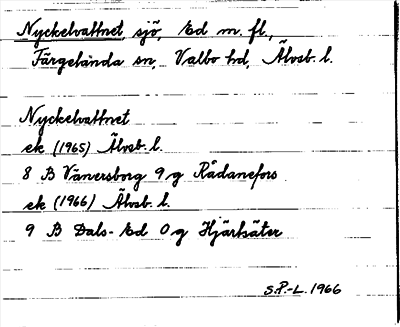 Nyckelvattnet, sjö, Ed m. fl.,
Färgelanda sn, Valbo hd, Älvsb. l.
Nyckelvattnet
ek (1965) Älvsb. l.
8 B Vänersborg 9 g Rådanefors
ek (1966) Älvsb. l.
9 B Dals-Ed 0 g Hjärtsäter
S.P.-L. 1966